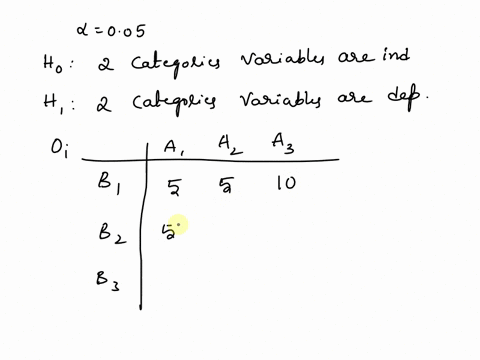 α = 0.05
H₀: 2 Categories Variables are ind
H₁: 2 Categories Variables are dep.
Oi A₁ A₂ A₃
B₁ 5 5 10
B₂ 5
B₃